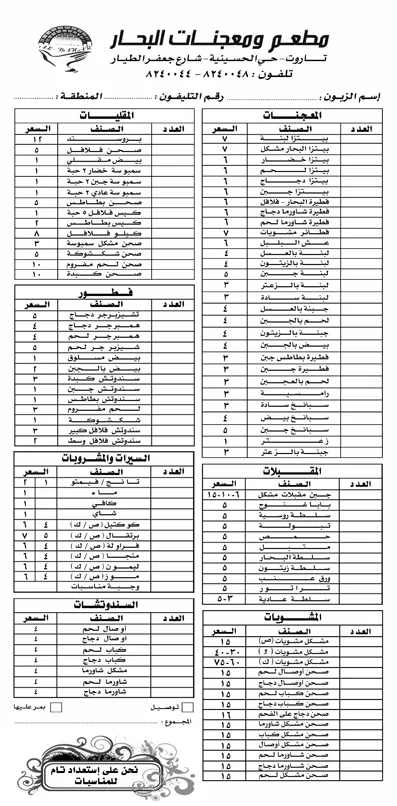 مطعم ومعجنات البحار
تاروت - حي الحسينية - شارع جعفر الطيار
تلفون : ٨٢٤٠٠٤٨ - ٨٢٤٠٠٤٤
إسم الزبون : رقم التليفون : المنطقة :
المعجنات
العدد الصنف السعر
بيتزا لبنة ٧
بيتزا البحار مشكل ٧
بيتزا خضار ٦
بيتزا لحم ٦
بيتزا دجاج ٦
بيتزا جبن ٦
فطيرة البحار - فلافل ٦
فطيرة شاورما دجاج ٦
فطيرة شاورما لحم ٦
فطائر مشويات ٧
عش البلبل ٦
لبنة بالعسل ٤
لبنة بالزيتون ٤
لبنة جبن ٥
لبنة بالزعتر ٣
لبنة سادة ٣
جبنة بالعسل ٤
لحم بالجبن ٤
جبنة بالزيتون ٤
بيض بالجبن ٤
فطيرة بطاطس جبن ٣
فطيرة جبن ٣
لحم بالعجين ٣
رامسية ٣
سبانخ سادة ٣
سبانخ بيض ٤
سبانخ جبن ٥
زعتر ١
جبنة بالزعتر ٣
المقبلات
العدد الصنف السعر
جبن مقبلات مشكل ٦-١٠-١٥
بابا غنوج ٥
سلطة روسية ٥
تبولة ٥
حمص ٥
متبل ٥
سلطة البحار ٥
سلطة زيتون ٥
ورق عنب ٥
تراتور ٥
سلطة عادية ٣-٥
المشويات
العدد الصنف السعر
مشكل مشويات (ص) ١٥
مشكل مشويات (و) ٣٠-٤٠
مشكل مشويات (ك) ٦٠-٧٥
صحن اوصال لحم ١٥
صحن اوصال دجاج ١٥
صحن كباب لحم ١٥
صحن كباب دجاج ١٥
صحن دجاج على الفحم ١٦
صحن مشكل اوصال ١٥
صحن مشكل كباب ١٥
صحن شاورما دجاج ١٥
صحن شاورما لحم ١٥
صحن مشكل لحم ١٥
المقليات
العدد الصنف السعر
بروستد ١٢
صحن فلافل ٥
بيض مقلي ١
سمبوسة خضار ٢ حبة ١
سمبوسة جبن ٢ حبة ١
سمبوسة عادي ٢ حبة ١
صحن بطاطس ٥
كيس فلافل ٥ حبة ١
كيس بطاطس ٢
كيلو فلافل ٨
صحن مشكل سمبوسة ٣
صحن شكشوكة ٥
صحن لحم مفروم ١٠
صحن كبدة ١٠
فطور
العدد الصنف السعر
تشيزبرجر دجاج ٥
همبرجر دجاج ٤
همبرجر لحم ٤
تشيزبرجر لحم ٥
بيض مسلوق ١
بيض بالجبن ٢
سندوتش كبدة ٣
سندوتش جبن ١
سندوتش بطاطس ١
لحم مفروم ٣
شكشوكة ١
سندوتش فلافل كبير ٣
سندوتش فلافل وسط ٢
السيرات والمشروبات
العدد الصنف السعر
تانج / فيمتو ١ ٢
ماء ١
كافي ١
شاي ١
كوكتيل (ص / ك) ٤ ٦
برتقال (ص / ك) ٥ ٧
فراولة (ص / ك) ٤ ٦
منجا (ص / ك) ٤ ٦
ليمون (ص / ك) ٤ ٦
موز (ص / ك) ٤ ٦
وجبة مناسبات
السندوتشات
العدد الصنف السعر
اوصال لحم ٤
اوصال دجاج ٤
كباب لحم ٤
كباب دجاج ٤
مشكل شاورما ٤
شاورما لحم ٤
شاورما دجاج ٤
توصيل
يمر عليها
المجموع :
نحن على إستعداد تام
للمناسبات